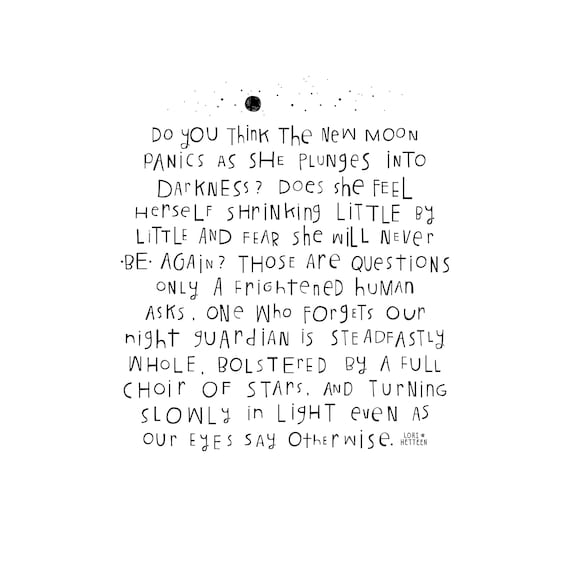 DO YOU THINK THE NEW MOON
PANICS AS SHE PLUNGES INTO
DARKNESS? DOES SHE FEEL
HERSELF SHRINKING LITTLE BY
LITTLE AND FEAR SHE WILL NEVER
·BE· AGAIN? THOSE ARE QUESTIONS
ONLY A FRIGHTENED HUMAN
ASKS. ONE WHO FORGETS OUR
NIGHT GUARDIAN IS STEADFASTLY
WHOLE, BOLSTERED BY A FULL
CHOIR OF STARS, AND TURNING
SLOWLY IN LIGHT EVEN AS
OUR EYES SAY OTHERWISE.
LORI
HETTEEN